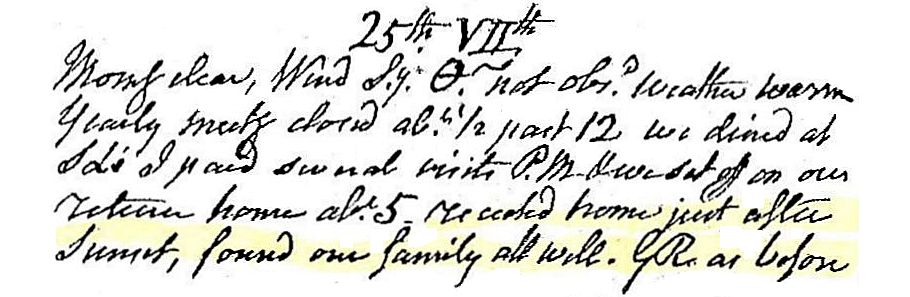 25th VIIth
Morng clear, Wind S.y. Θ.r not obs.d weather warm
Yearly meetg closed ab.t 1/2 past 12 we dined at
I paid several visits P.M & we set off on our
return home ab.t 5 reached home just after
sunset, found our family all well. GR. as before